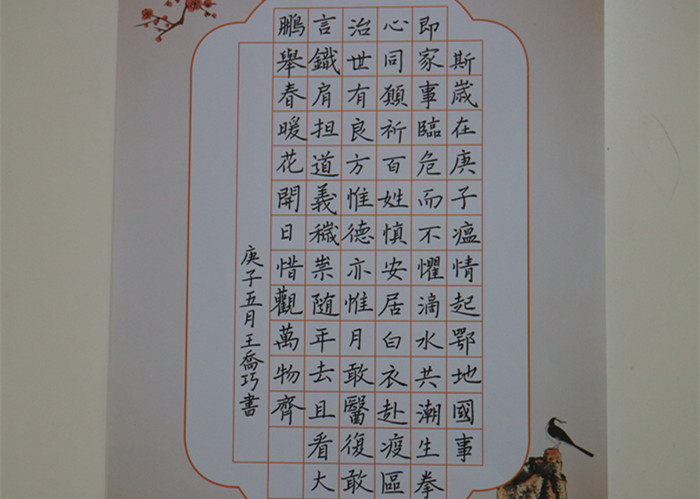 斯歲在庚子瘟情起鄂地國事
即家事臨危而不懼滴水共潮生拳
心同願祈百姓慎安居白衣赴疫區
治世有良方惟德亦惟月敢醫復敢
言鐵肩担道義穢祟随年去且看大
鵬舉春暖花開日惜觀萬物齊
庚子五月王喬巧書